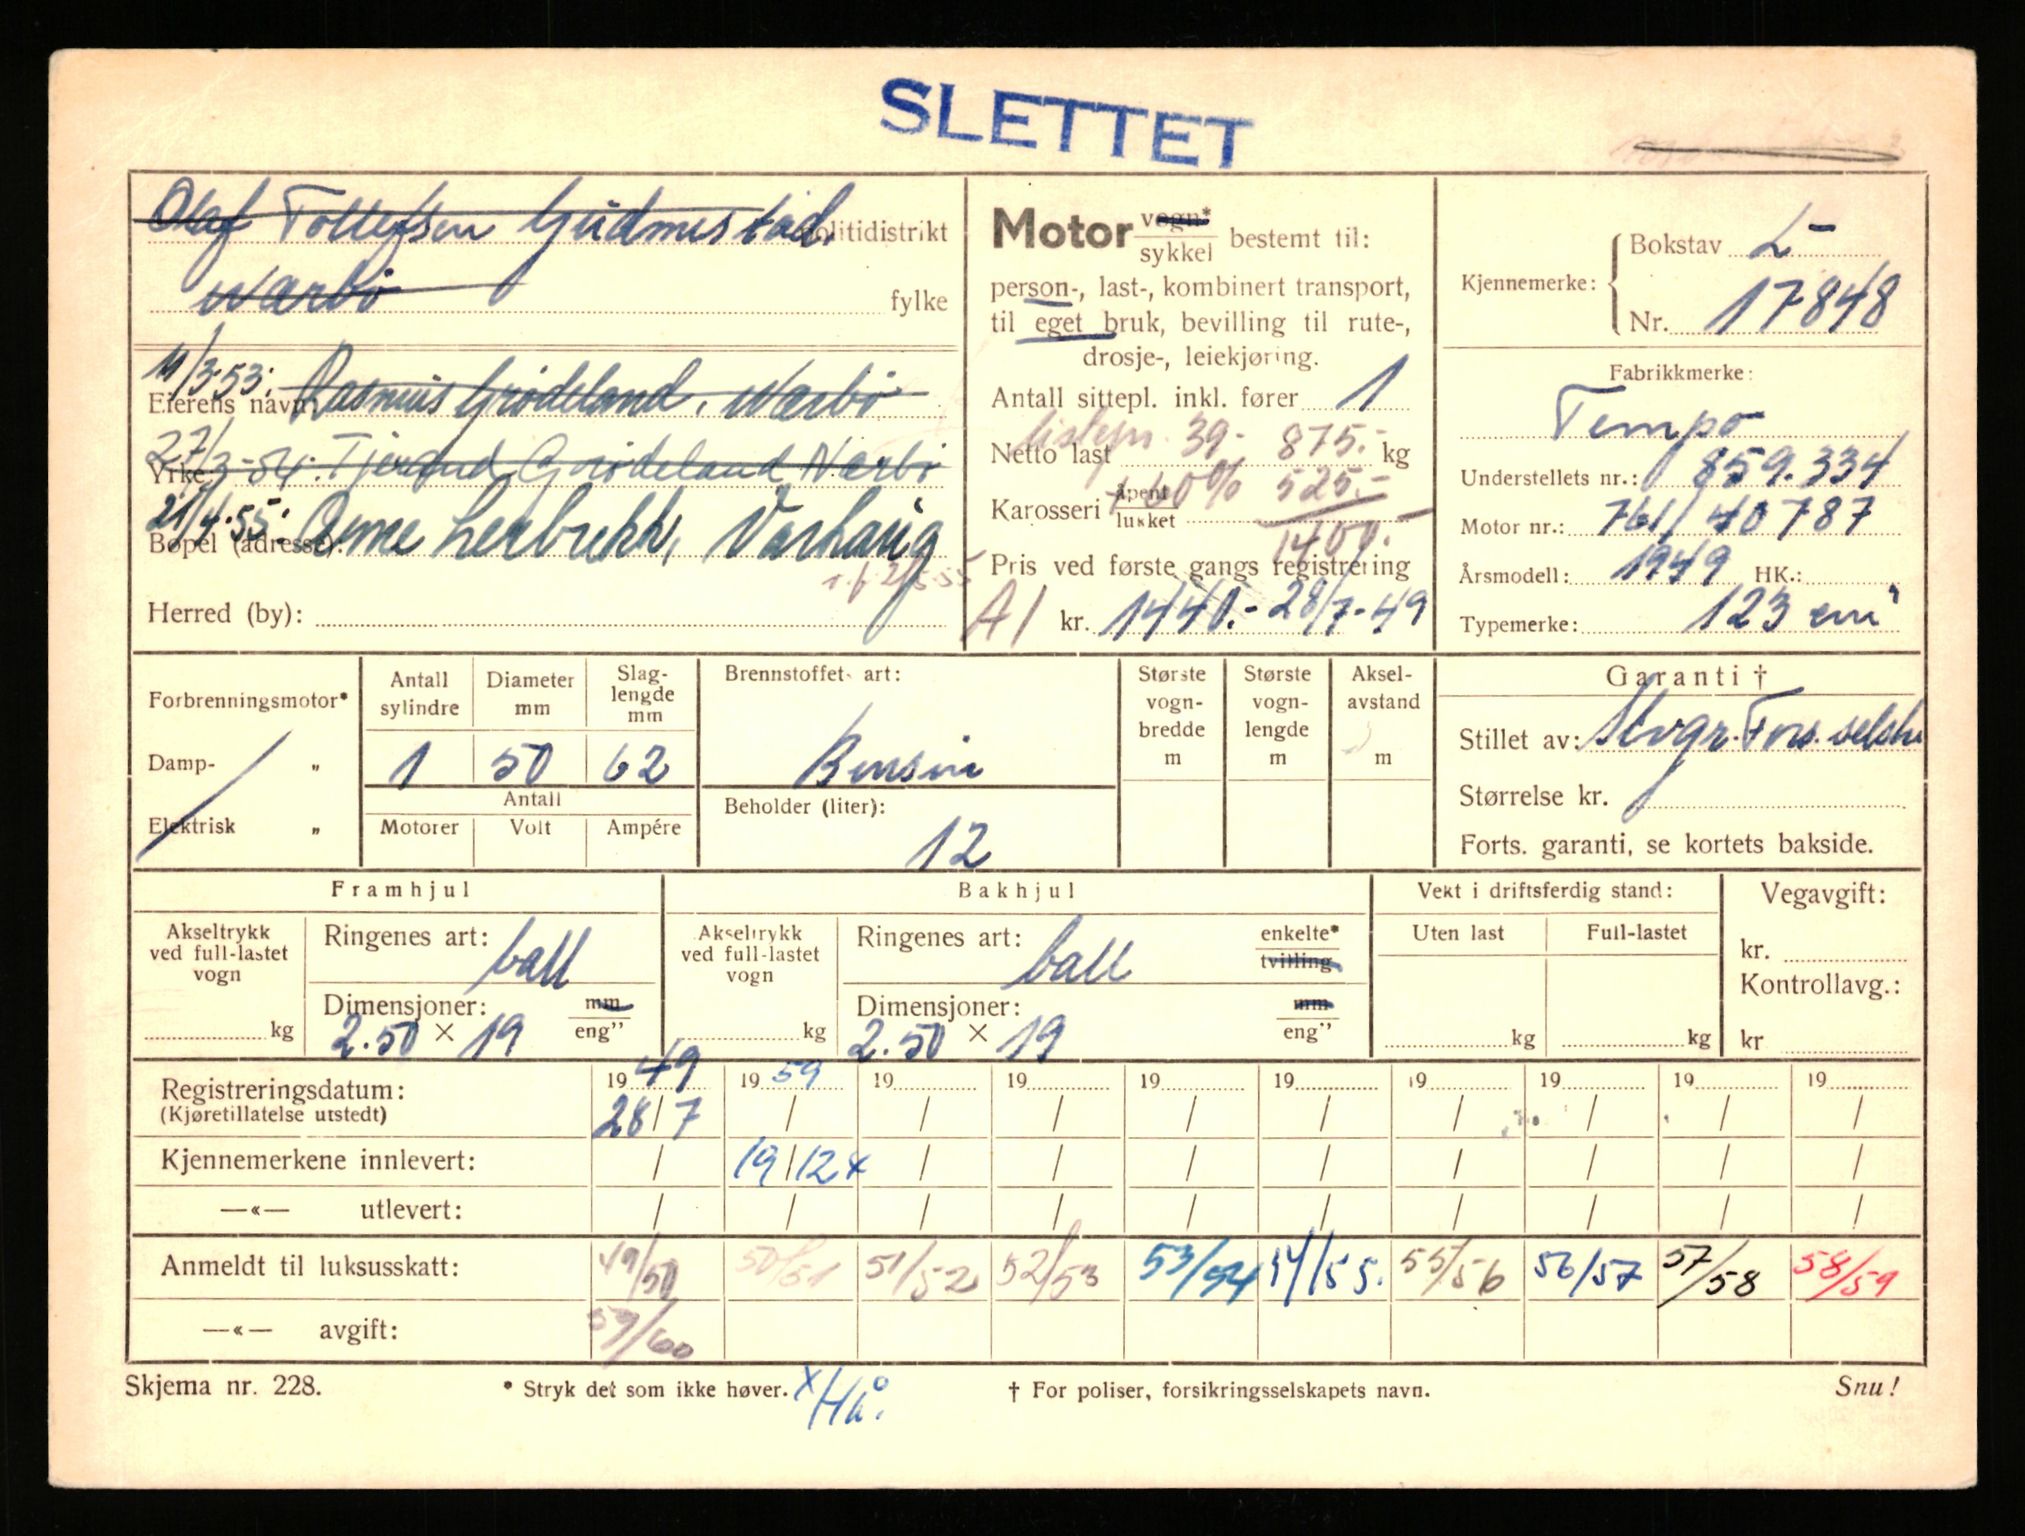 SLETTET
Olaf Tollefsen Gudmestad. politidistrikt
Nærbø fylke
11/3-53: Rasmus Grødeland, Nærbø
Eierens navn:
27/3-54. Tjerand Grødeland Nærbø
Yrke:
21/4-55: Arne Lerbrekk, Varhaug
Bopel (adresse):
Herred (by):
Motor vogn* / sykkel bestemt til:
person-, last-, kombinert transport,
til eget bruk, bevilling til rute-,
drosje-, leiekjøring.
Antall sittepl. inkl. fører 1
Listepr. 39 - 875.-
Netto last kg
+ 60% 525.-
Karosseri åpent / lukket
1400.-
Pris ved første gangs registrering
A1 kr. 1440.- 28/7-49
Kjennemerke: Bokstav L-
Nr. 17848
Fabrikkmerke:
Tempo
Understellets nr.: 859.334
Motor nr.: 761/40787
Årsmodell: 1949 HK.:
Typemerke: 123 cm³
Forbrenningsmotor*
Damp- „
Elektrisk „
Antall sylindre Diameter mm Slag-lengde mm
1 50 62
Antall
Motorer Volt Ampére
Brennstoffets art:
Bensin
Beholder (liter):
12
Største vogn-bredde m
Største vogn-lengde m
Aksel-avstand m
Garanti †
Stillet av: Stvgr. Fors.selsk.
Størrelse kr.
Forts. garanti, se kortets bakside.
Framhjul
Akseltrykk ved full-lastet vogn
kg
Ringenes art: ball
Dimensjoner: mm
2.50 × 19 eng”
Bakhjul
Akseltrykk ved full-lastet vogn
kg
Ringenes art: ball enkelte* / tvilling
Dimensjoner: mm
2.50 × 19 eng”
Vekt i driftsferdig stand:
Uten last Full-lastet
kg kg
Vegavgift:
kr.
Kontrollavg.:
kr
Registreringsdatum: 1949 1959 19 19 19 19 19 19 19 19
(Kjøretillatelse utstedt) 28/7 / / / / / / / / /
Kjennemerkene innlevert: / 19/12 x / / / / / / / /
—«— utlevert: / / / / / / / / / /
Anmeldt til luksusskatt: 49/50 50/51 51/52 52/53 53/54 54/55. 55/56 56/57 57/58 58/59
—«— avgift: 59/60
Skjema nr. 228. * Stryk det som ikke høver. x/Hå. † For poliser, forsikringsselskapets navn. Snu!